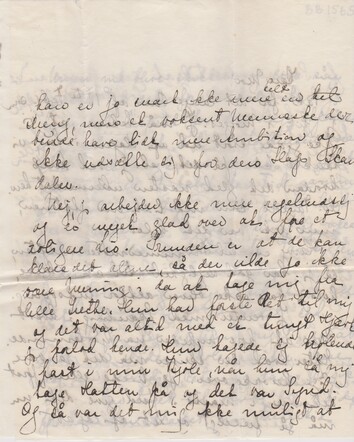 han er jo snart ikke mere en lit
dreng, men et voksent Menneske der
burde have lidt mere Ambition og
ikke udsætte sig for den Slags Skan
daler.
Nej, j arbejder ikke mere regelmæssigt
og er meget glad over at faa et
roligere Liv. Grunden er at de kan
klare det alene, saa der vilde jo ikke
være Mening i da at tage mig fra
lille Grethe. Hun har først til mig
og det var altid med et tungt Hjerte
j forlod hende. Hun tagede ej krampe
hart i min Kjole, når hun så mig
tage Hatten på og det var
Og så var det mig ikke muligt at